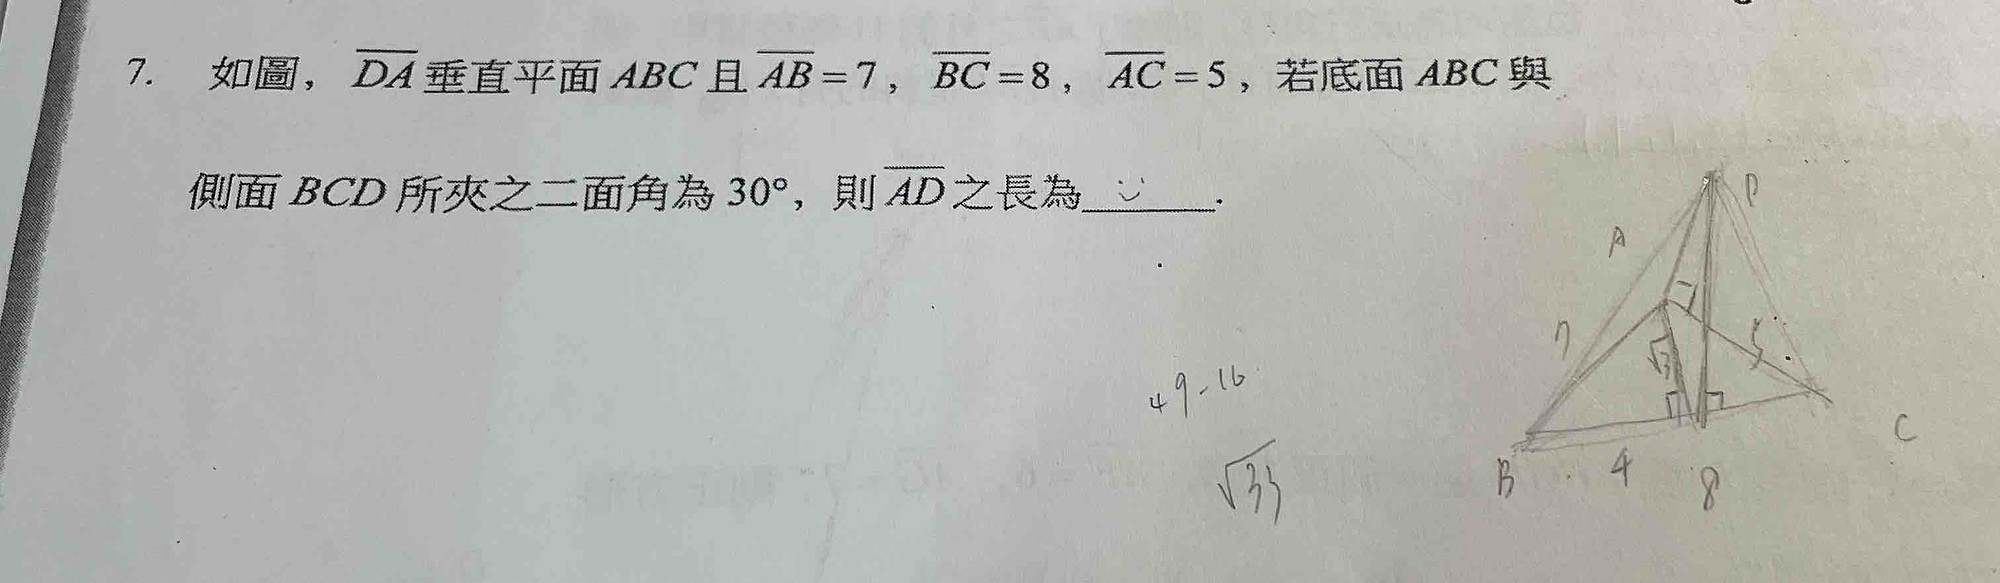 7. 如圖，DA垂直平面 ABC 且 AB=7，BC=8，AC=5，若底面 ABC 與
側面 BCD 所夾之二面角為 30°，則 AD 之長為______.
D
A
7
5
49-16
√33
B
4
8
C